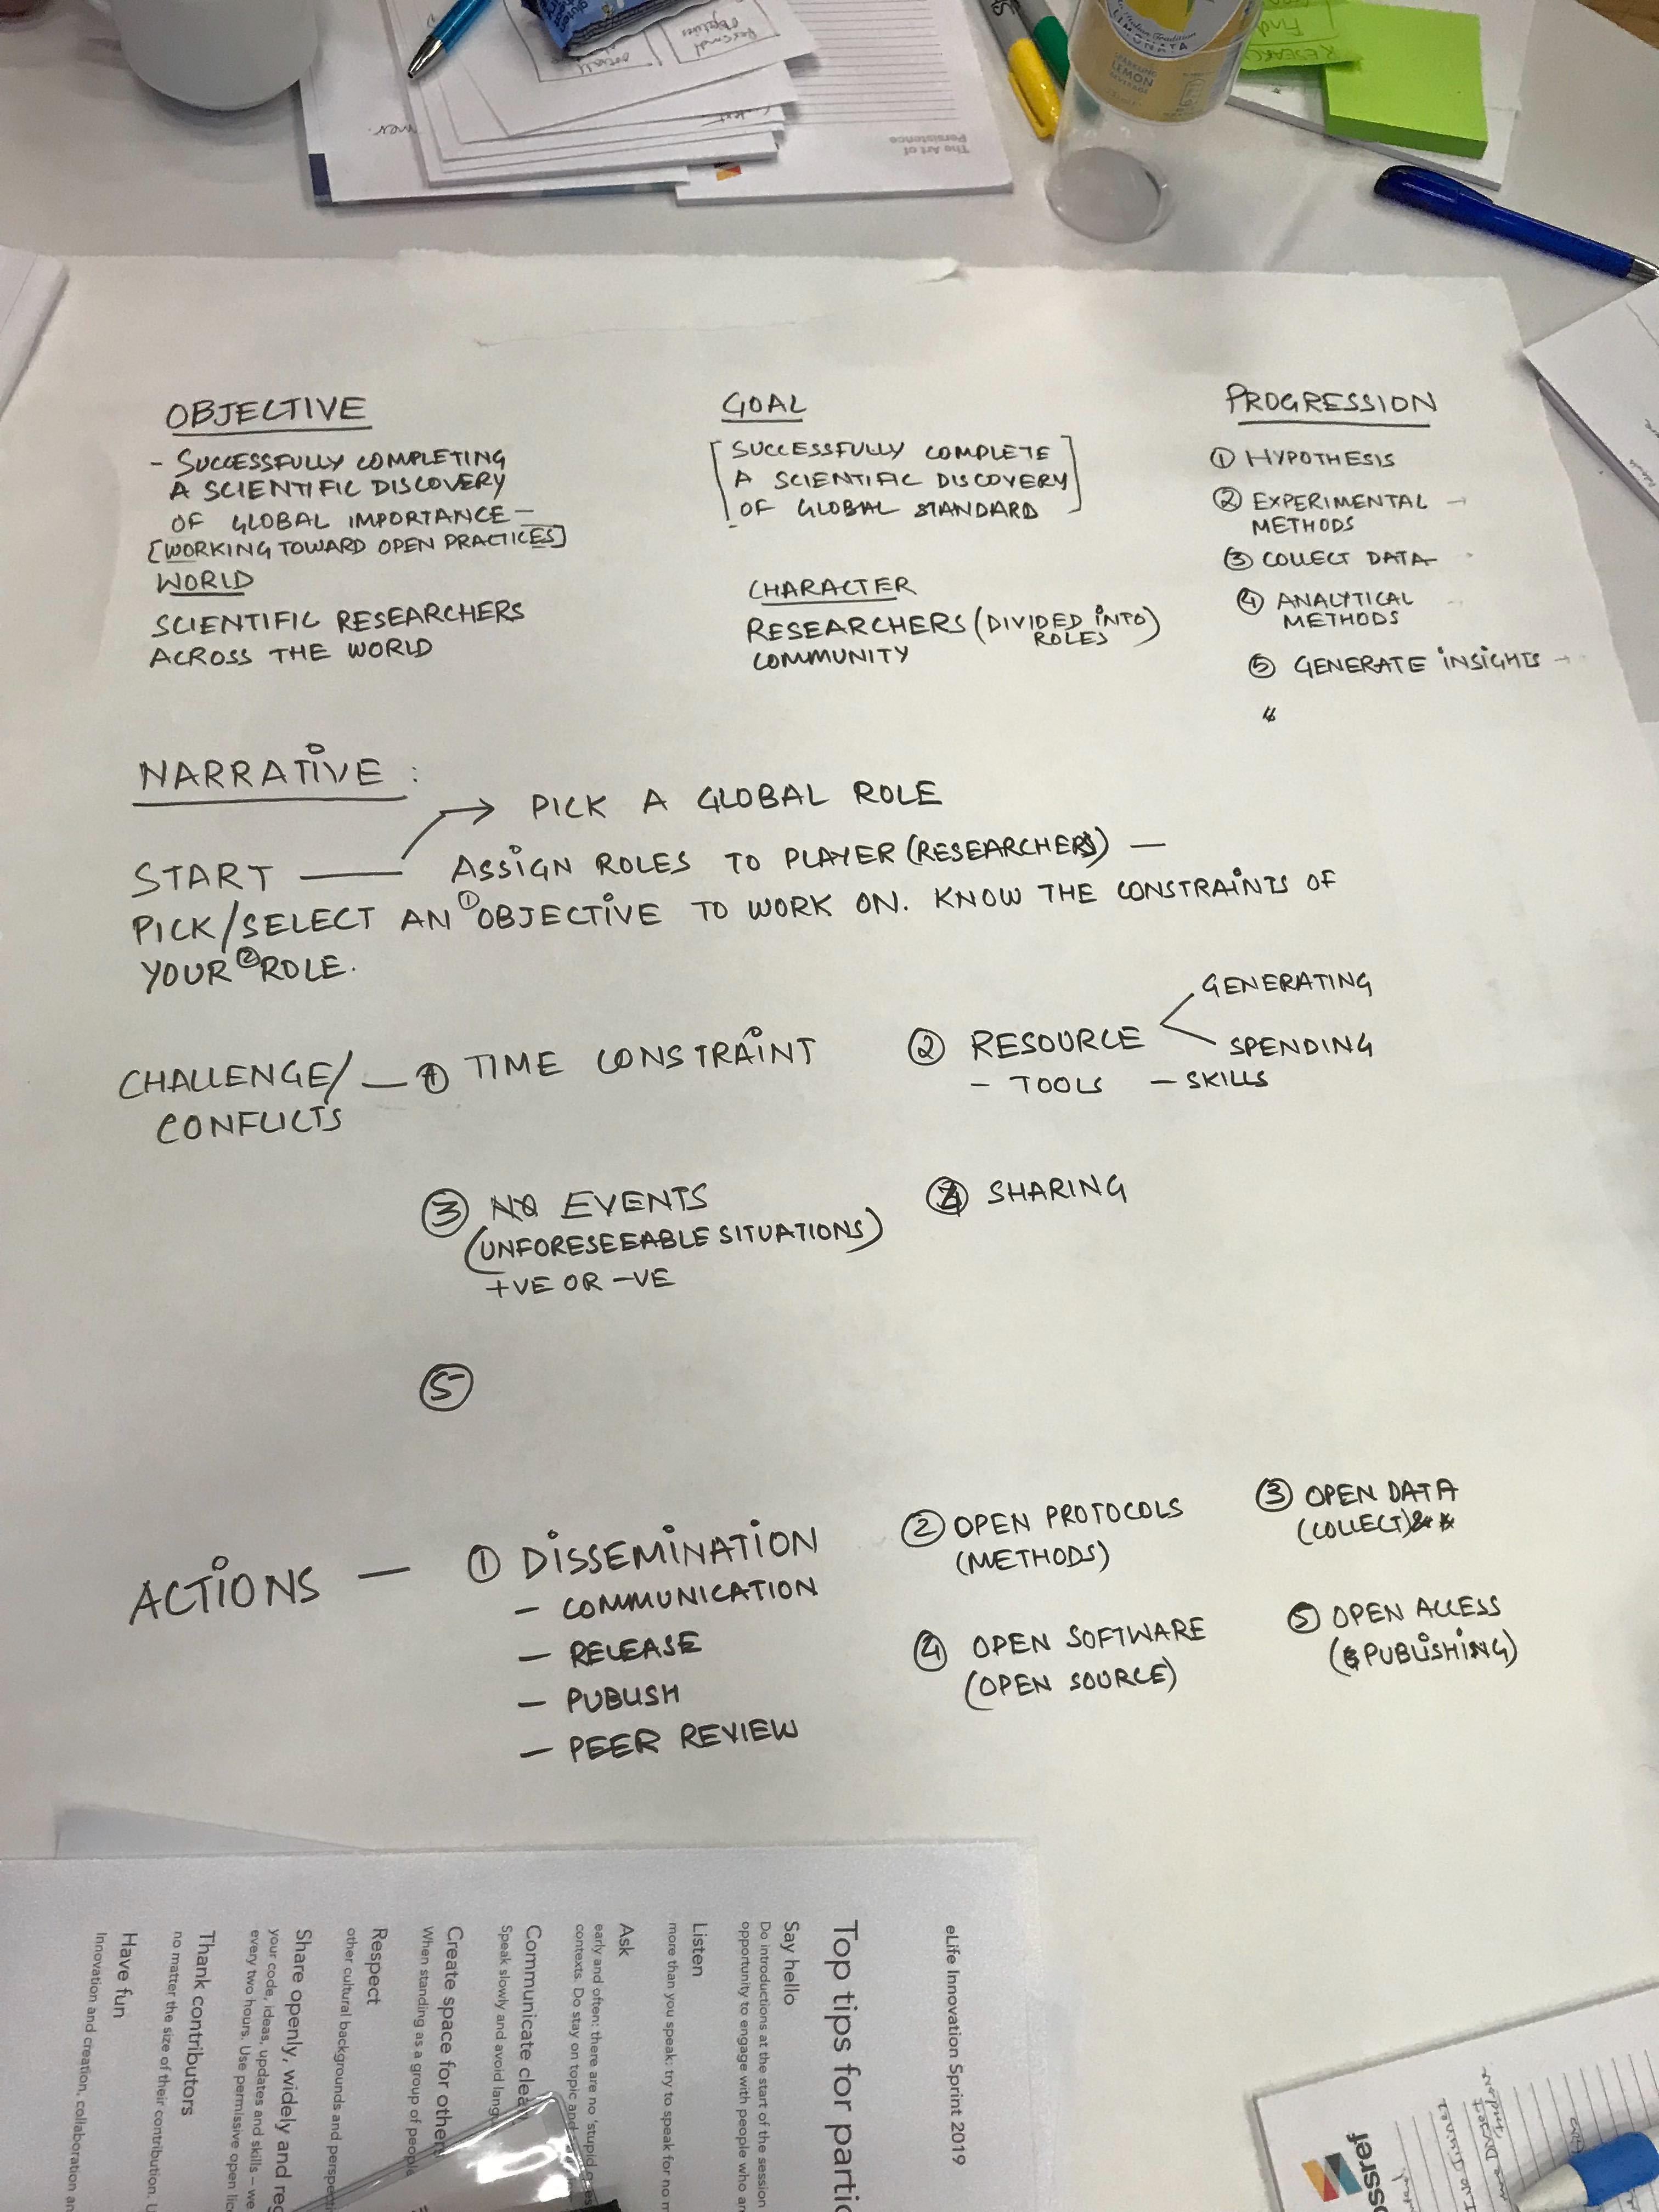 The Art of
Persistence
Personal
Objectives
LEMON
RESEARC
Find
OBJECTIVE
- SUCCESSFULLY COMPLETING
A SCIENTIFIC DISCOVERY
OF GLOBAL IMPORTANCE —
[WORKING TOWARD OPEN PRACTICES]
WORLD
SCIENTIFIC RESEARCHERS
ACROSS THE WORLD
GOAL
[SUCCESSFULLY COMPLETE
A SCIENTIFIC DISCOVERY
OF GLOBAL STANDARD]
CHARACTER
RESEARCHERS (DIVIDED INTO
ROLES)
COMMUNITY
PROGRESSION
① HYPOTHESIS
② EXPERIMENTAL →
METHODS
③ COLLECT DATA
④ ANALYTICAL
METHODS
⑤ GENERATE INSIGHTS →
NARRATIVE :
START → PICK A GLOBAL ROLE
ASSIGN ROLES TO PLAYER (RESEARCHERS) —
PICK/SELECT AN ① OBJECTIVE TO WORK ON. KNOW THE CONSTRAINTS OF
YOUR ② ROLE.
CHALLENGE/ — ① TIME CONSTRAINT
CONFLICTS
② RESOURCE
GENERATING
SPENDING
- TOOLS - SKILLS
③ NO EVENTS
(UNFORESEEABLE SITUATIONS)
+VE OR -VE
④ SHARING
⑤
ACTIONS — ① DISSEMINATION
- COMMUNICATION
- RELEASE
- PUBLISH
- PEER REVIEW
② OPEN PROTOCOLS
(METHODS)
③ OPEN DATA
(COLLECT)
④ OPEN SOFTWARE
(OPEN SOURCE)
⑤ OPEN ACCESS
(PUBLISHING)
eLife Innovation Sprint 2019
Top tips for partic
Say hello
Do introductions at the start of the session
opportunity to engage with people who ar
Listen
more than you speak: try to speak for no m
Ask
early and often: there are no 'stupid
contexts. Do stay on topic and
Communicate clea
Speak slowly and avoid lang
Create space for other
When standing as a group of people
Respect
other cultural backgrounds and perspe
Share openly, widely and reg
your code, ideas, updates and skills – we
every two hours. Use permissive open lic
Thank contributors
no matter the size of their contribution. U
Have fun
Innovation and creation, collaboration an
ossref